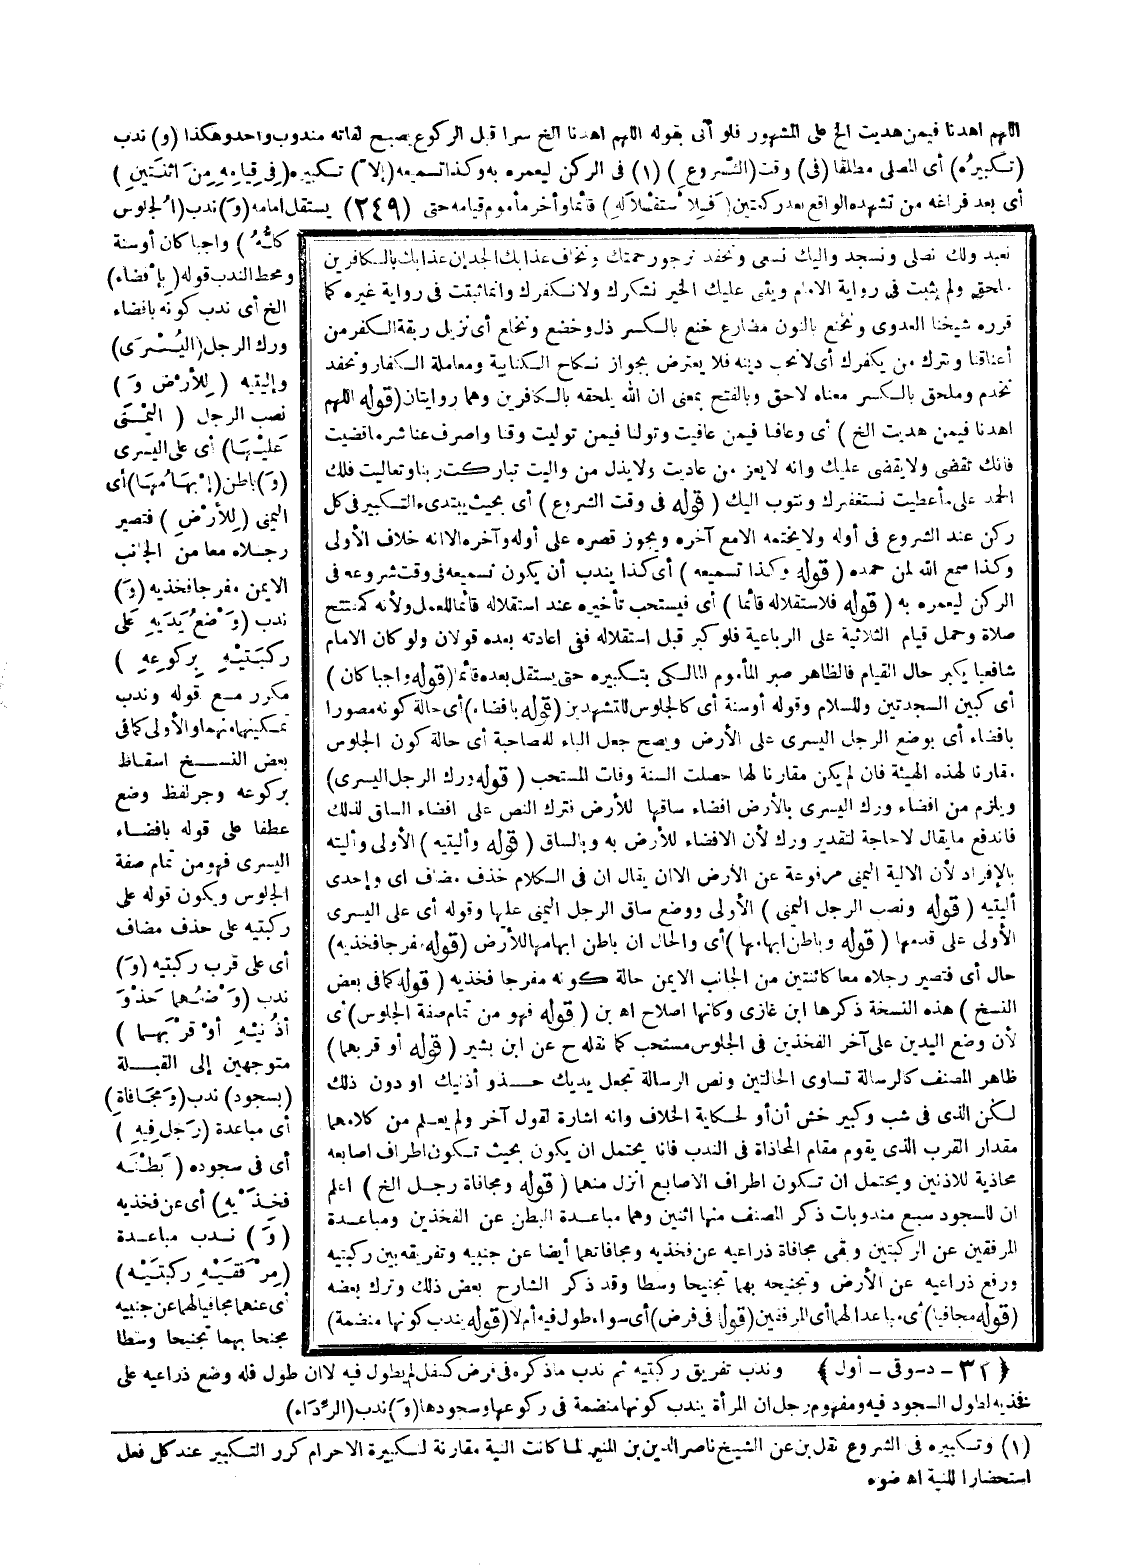 اللهم اهدنا فيمن هديت الخ على المشهور فلو أتى بقوله اللهم اهدنا الخ سرا قبل الركوع بصبح لفاته مندوب واحد وهكذا (و) ندب
(تكبيرُه) أى المصلى مطلقا (فى) وقت (الشُّروعِ) (١) فى الركن ليعمره به وكذا تسميعه (إلاّ) تكبيره (فى قِيامِهِ مِنَ اثنَتَينِ)
أى بعد فراغه من تشهده الواقع بعد ركعتين (فَلِاسْتقْلالِهِ) قائما وأخر مأموم قيامه حتى (٢٤٩) يستقل امامه (وَ) ندب (الجلوس
كلُّهُ) واجبا كان أو سنة
ومحط الندب قوله (بإِفْضاء)
الخ أى ندب كونه بافضاء
ورك الرجل (اليُسْرَى)
وإليتيه (لِلأَرْضِ وَ)
نصب الرجل (اليُمْنَى
عَليْهَا) أى على اليسرى
(وَ) باطن (إِبْهَامُهَا) أى
اليمنى (لِلأَرْضِ) فتصير
رجلاه معا من الجانب
الايمن مفرجا فخذيه (وَ)
ندب (وَضْعُ يَدَيهِ عَلَى
ركبَتَيْهِ بِركوعِهِ)
مكرر مع قوله وندب
تمكينهما منهما والأولى كما فى
بعض النسخ اسقاط
بركوعه وجر لفظ وضع
عطفا على قوله بافضاء
اليسرى فهو من تمام صفة
الجلوس ويكون قوله على
ركبتيه على حذف مضاف
أى على قرب ركبتيه (وَ)
ندب (وَضْعُهُما حَذْوَ
أذُنَيْهِ أوْ قرْبَهما)
متوجهين إلى القبلة
(بسجود) ندب (وَمجَافاةِ)
أى مباعدة (رَجلٍ فِيهِ)
أى فى سجوده (بَطْنَه
فخِذَيْهِ) أى عن فخذيه
(وَ) ندب مباعدة
(مِرْفَقَيْهِ ركبَتَيْه)
أى عنهما مجافيا لهما عن جنبيه
مجنحا بهما تجنيحا وسطا
نعبد ولك نصلى ونسجد واليك نسعى ونحفد نرجو رحمتك ونخاف عذابك الجد إن عذابك بالكافرين
ملحق ولم يثبت فى رواية الامام ويثنى عليك الخير نشكرك ولا نكفرك وانما ثبتت فى رواية غيره كما
قرره شيخنا العدوى ونخنع بالنون مضارع خنع بالكسر ذل وخضع ونخلع أى نزيل ربقة الكفر من
أعناقنا ونترك من يكفرك أى لا نحب دينه فلا يعترض بجواز نكاح الكتابية ومعاملة الكفار ونحفد
نخدم وملحق بالكسر معناه لاحق وبالفتح بمعنى ان الله يلحقه بالكافرين وهما روايتان (قوله اللهم
اهدنا فيمن هديت الخ) أى وعافنا فيمن عافيت وتولنا فيمن توليت وقنا واصرف عنا شر ما قضيت
فانك تقضى ولا يقضى عليك وانه لا يعز من عاديت ولا يذل من واليت تباركت ربنا وتعاليت فلك
الحمد على ما أعطيت نستغفرك ونتوب اليك (قوله فى وقت الشروع) أى بحيث يبتدىء التكبير فى كل
ركن عند الشروع فى أوله ولا يختمه الا مع آخره ويجوز قصره على أوله وآخره الا انه خلاف الأولى
وكذا سمع الله لمن حمده (قوله وكذا تسميعه) أى كذا يندب أن يكون تسميعه فى وقت شروعه فى
الركن ليعمره به (قوله فلاستقلاله قائما) أى فيستحب تأخيره عند استقلاله قائما للعمل ولأنه كمفتتح
صلاة وحمل قيام الثلاثية على الرباعية فلو كبر قبل استقلاله ففى اعادته بعده قولان ولو كان الامام
شافعيا يكبر حال القيام فالظاهر صبر المأموم المالكى بتكبيره حتى يستقل بعده قائما (قوله واجبا كان)
أى كبين السجدتين وللسلام وقوله أو سنة أى كالجلوس للتشهدين (قوله بافضاء) أى حالة كونه مصورا
بافضاء أى بوضع الرجل اليسرى على الأرض ويصح جعل الباء للمصاحبة أى حالة كون الجلوس
مقارنا لهذه الهيئة فان لم يكن مقارنا لها حصلت السنة وفات المستحب (قوله ورك الرجل اليسرى)
ويلزم من افضاء ورك اليسرى بالأرض افضاء ساقها للأرض فترك النص على افضاء الساق لذلك
فاندفع ما يقال لا حاجة لتقدير ورك لأن الافضاء للأرض به وبالساق (قوله وأليتيه) الأولى وأليته
بالإفراد لأن الالية اليمنى مرفوعة عن الأرض الا ان يقال ان فى الكلام حذف مضاف اى واحدى
أليتيه (قوله ونصب الرجل اليمنى) الأولى ووضع ساق الرجل اليمنى عليها وقوله أى على اليسرى
الأولى على قدمها (قوله وباطن ابهامها) أى والحال ان باطن ابهامها للأرض (قوله مفرجا فخذيه)
حال أى فتصير رجلاه معا كائنتين من الجانب الايمن حالة كونه مفرجا فخذيه (قوله كما فى بعض
النسخ) هذه النسخة ذكرها ابن غازى وكانها اصلاح اه بن (قوله فهو من تمام صفة الجلوس) أى
لأن وضع اليدين على آخر الفخذين فى الجلوس مستحب كما نقله ح عن ابن بشير (قوله أو قربهما)
ظاهر المصنف كالرسالة تساوى الحالتين ونص الرسالة تجعل يديك حذو أذنيك او دون ذلك
لكن الذى فى شب وكبير خش أن أو لحكاية الخلاف وانه اشارة لقول آخر ولم يعلم من كلامهما
مقدار القرب الذى يقوم مقام المحاذاة فى الندب فانا يحتمل ان يكون بحيث تكون اطراف اصابعه
محاذية للاذنين ويحتمل ان تكون اطراف الاصابع انزل منهما (قوله ومجافاة رجل الخ) اعلم
ان للسجود سبع مندوبات ذكر المصنف منها اثنين وهما مباعدة البطن عن الفخذين ومباعدة
المرفقين عن الركبتين وبقى مجافاة ذراعيه عن فخذيه ومجافاتهما أيضا عن جنبيه وتفريقه بين ركبتيه
ورفع ذراعيه عن الأرض وتجنيحه بهما تجنيحا وسطا وقد ذكر الشارح بعض ذلك وترك بعضه
(قوله مجافيا) أى مباعدا لهما أى المرفقين (قوله فى فرض) أى سواء طول فيه أم لا (قوله يندب كونها منضمة)
﴿ ٣٢ - دسوقى - أول ﴾ وندب تفريق ركبتيه ثم ندب ما ذكره فى فرض كنفل لم يطول فيه لا ان طول فله وضع ذراعيه على
فخذيه لطول السجود فيه ومفهوم رجل ان المرأة يندب كونها منضمة فى ركوعها وسجودها (وَ) ندب (الرِّدَاء)
(١) وتكبيره فى الشروع نقل بن عن الشيخ ناصر الدين بن المنير لما كانت النية مقارنة لتكبيرة الاحرام كرر التكبير عند كل فعل
استحضارا للنية اه ضوء